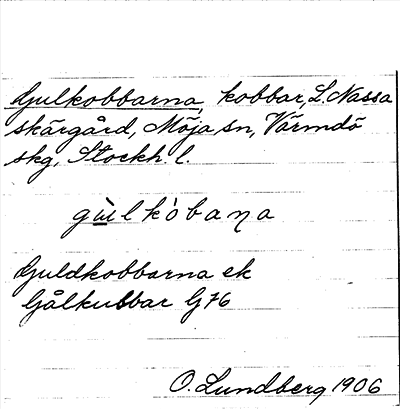 Gulkobbarna, kobbar, L. Nassa
skärgård, Möja sn, Värmdö
skg, Stockh. l.
gùlkòbaŋa
Guldkobbarna ek
Gålkubbar G76
O. Lundberg 1906